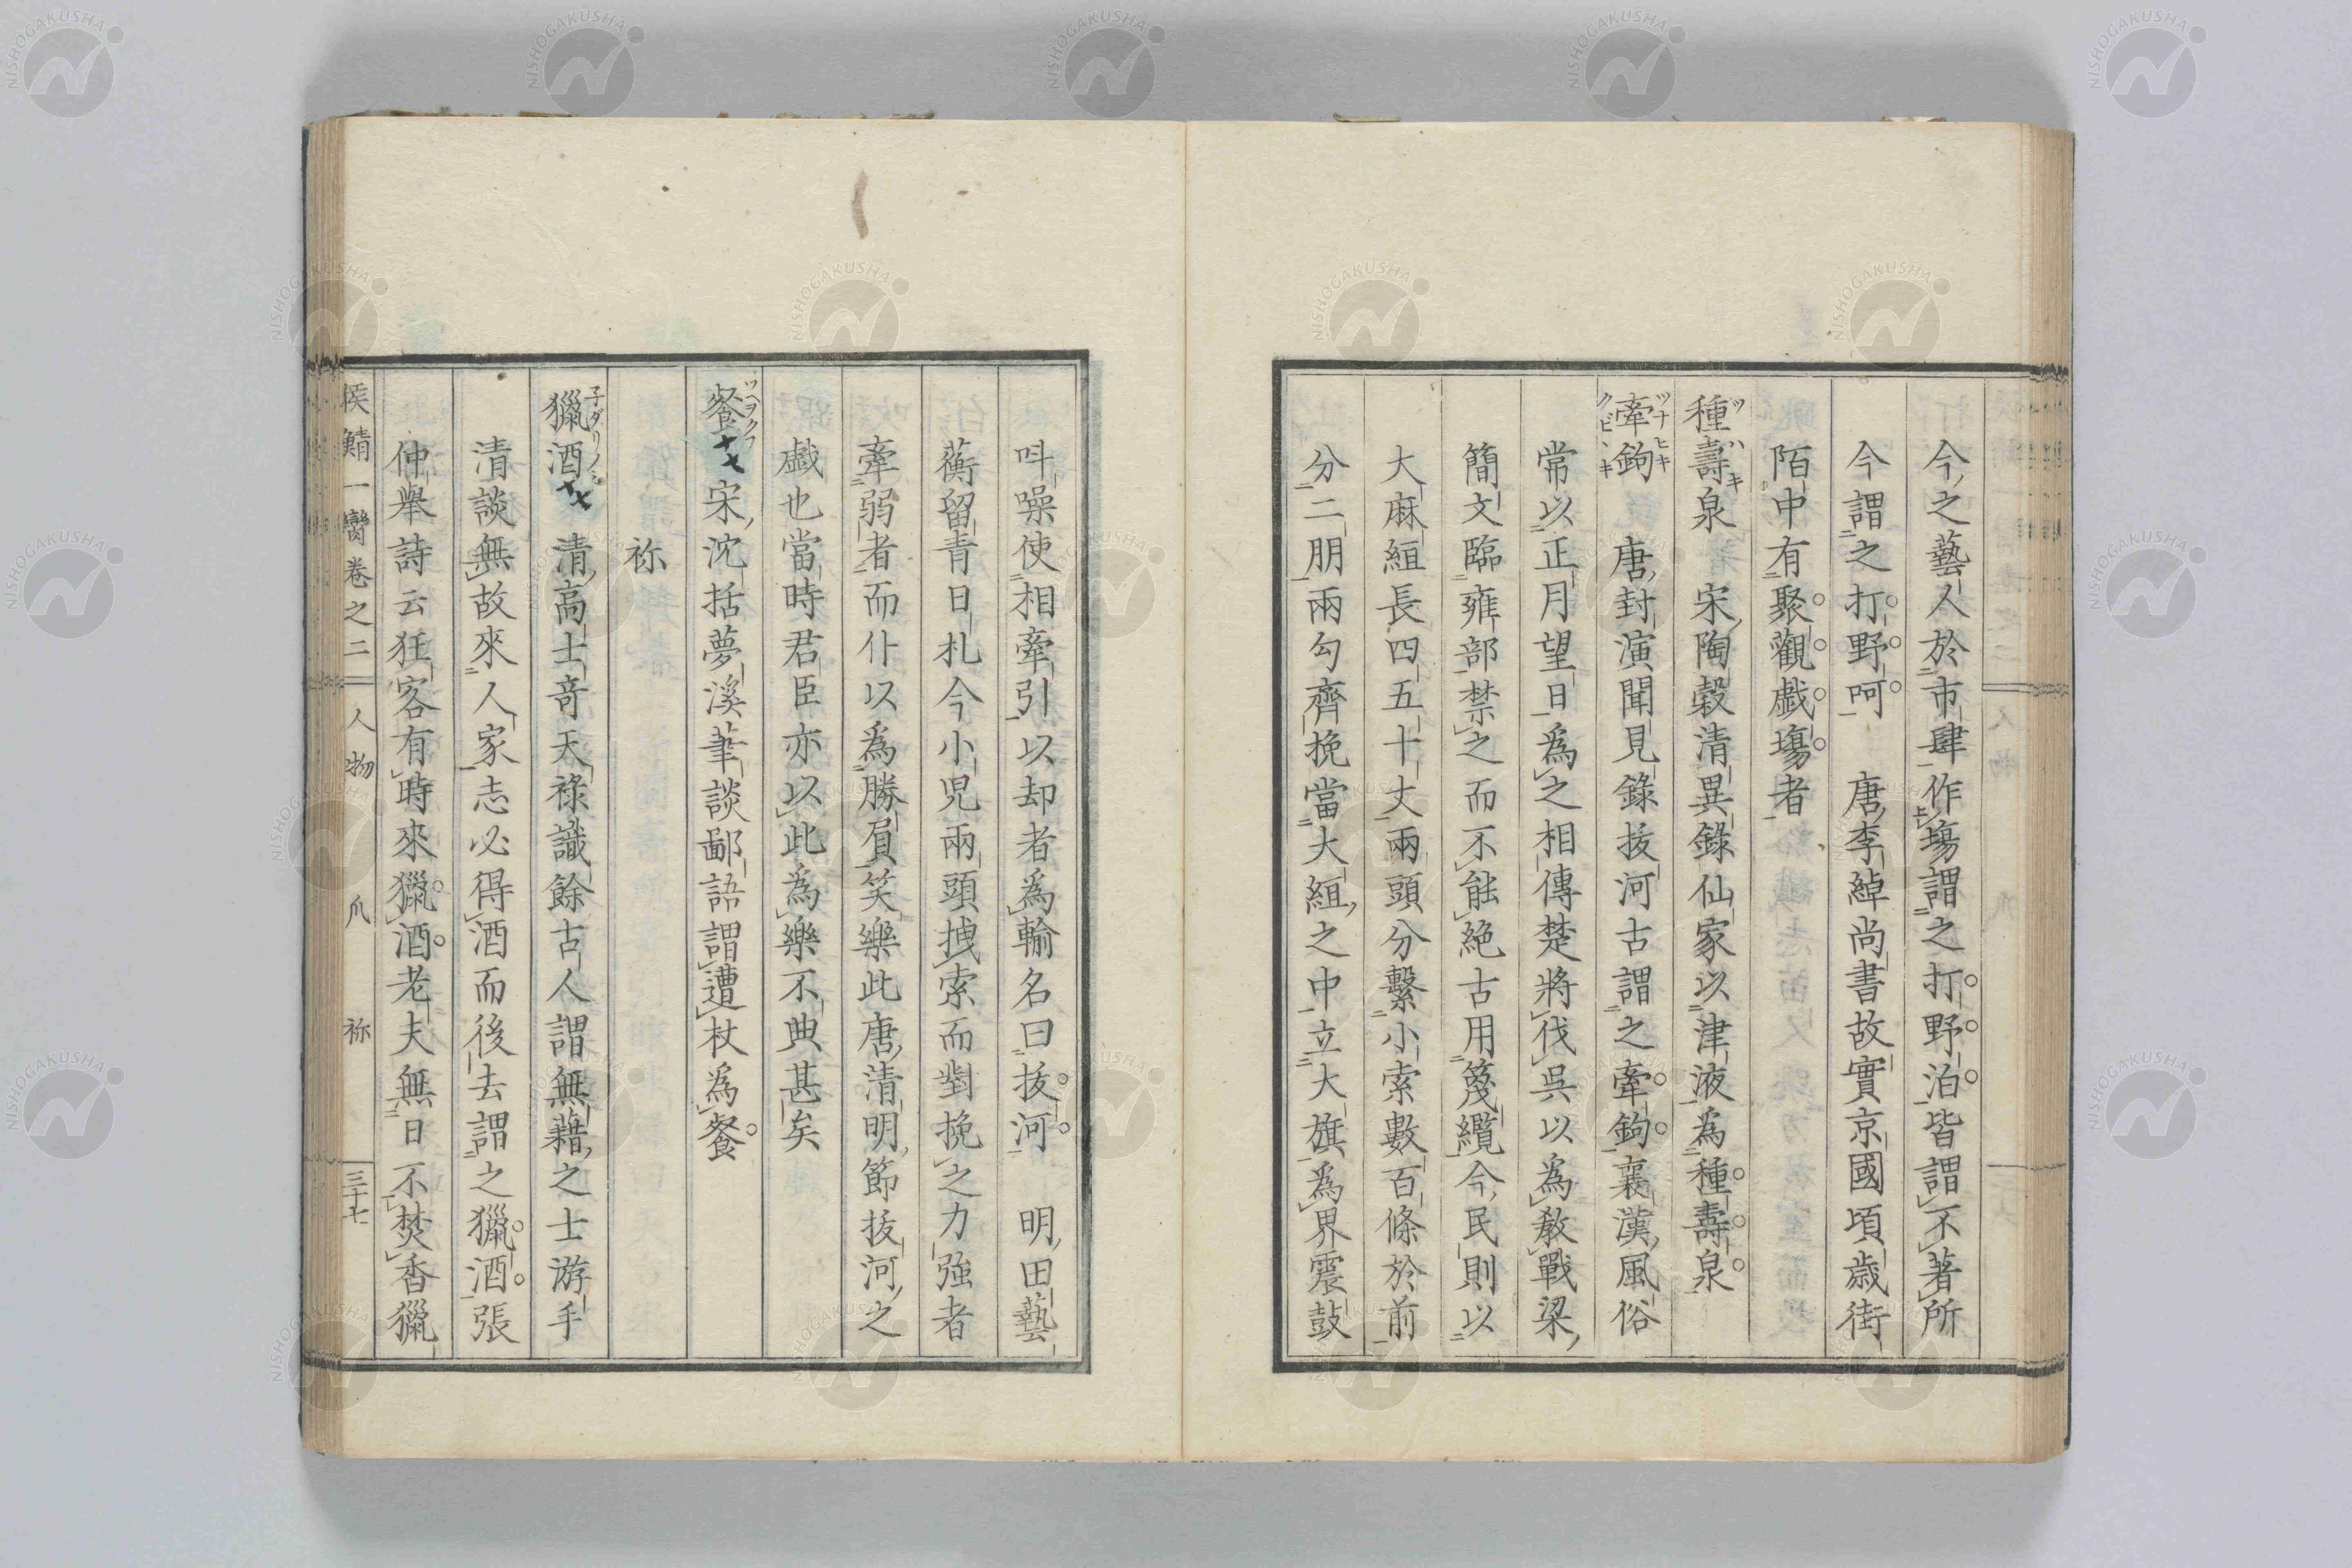 今之藝人於市肆作場謂之打野泊皆謂不著所
今謂之打野呵　唐李綽尚書故實京國頃歲街
陌中有聚觀戲場者
種壽泉　宋陶穀清異錄仙家以津液為種壽泉
ツハキ
牽鉤　唐封演聞見錄拔河古謂之牽鉤襄漢風俗
ツナヒキ
クビヽキ
常以正月望日為之相傳楚將伐吳以為教戰梁
簡文臨雍部禁之而不能絕古用篾纜今民則以
大麻絙長四五十丈兩頭分繫小索數百條於前
分二朋兩勾齊挽當大絙之中立大旗為界震鼓
叫噪使相牽引以却者為輸名曰拔河　明田藝
蘅留青日札今小兒兩頭拽索而對挽之力強者
牽弱者而仆以為勝負笑樂此唐清明節拔河之
戲也當時君臣亦以此為樂不典甚矣
餐　宋沈括夢溪筆談鄙語謂遭杖為餐
ツヘヲクフ
祢
獵酒　清高士奇天祿識餘古人謂無藉之士游手
子ダリノミ
清談無故來人家志必得酒而後去謂之獵酒張
仲舉詩云狂客有時來獵酒老夫無日不焚香獵
侯鯖一臠卷之二　人物　爪　祢　三十七
NISHOGAKUSHA